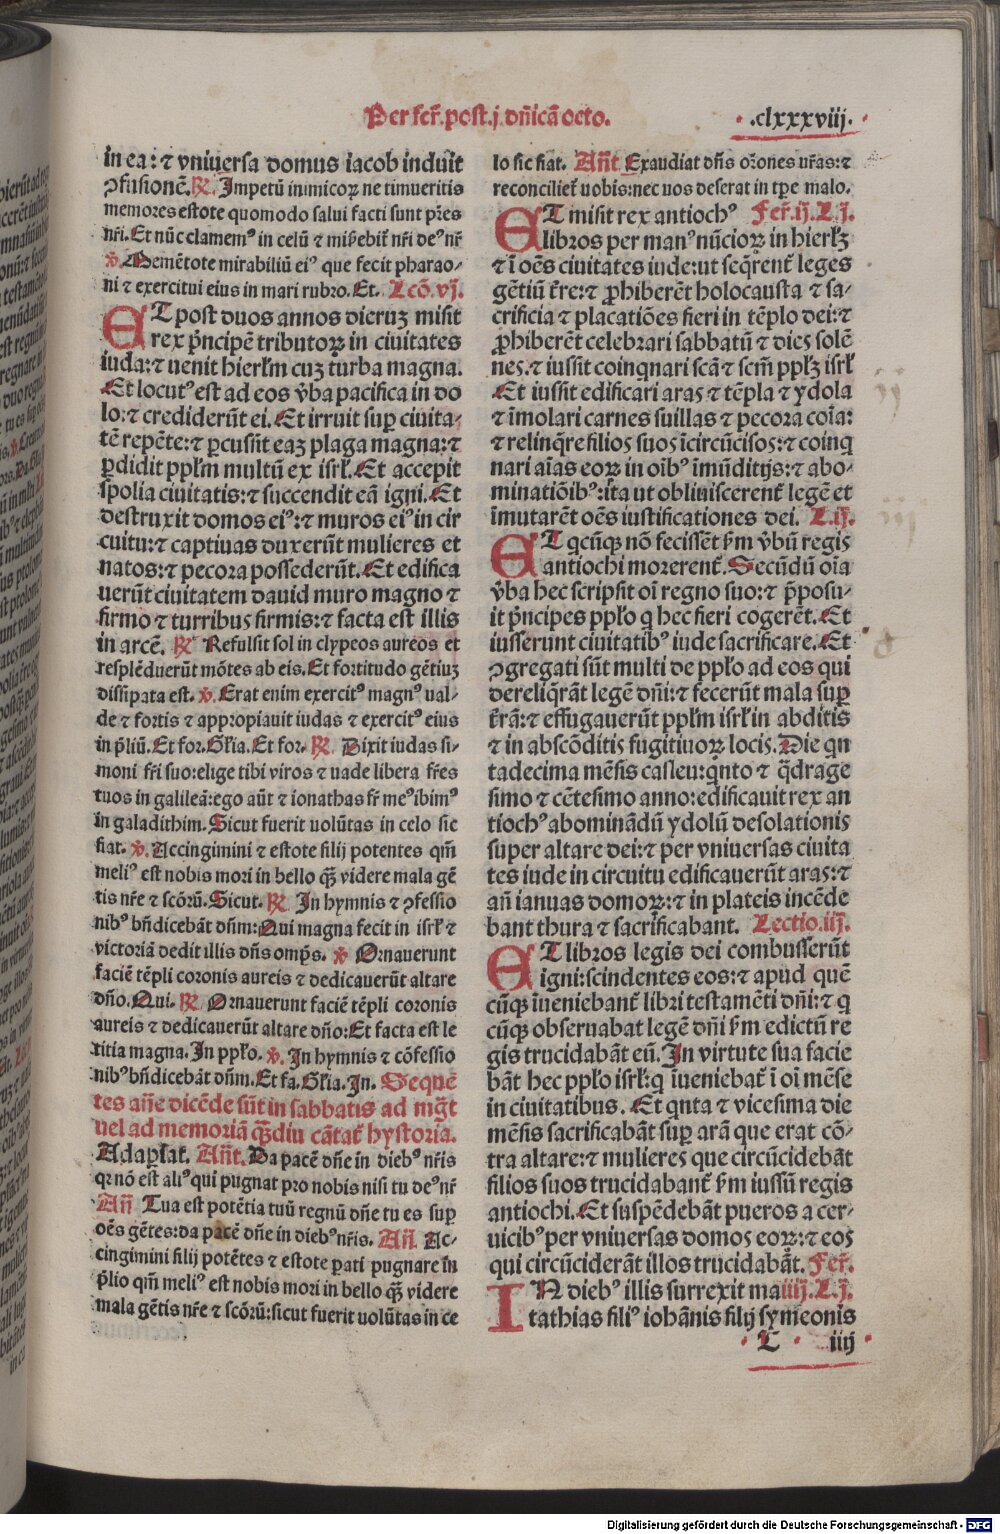 Per fer̃. post. j. dñicã octo.
.clxxxviij.
in ea: ⁊ vniuersa domus iacob induit
ꝯfusionẽ. ℟. Impetũ inimicoꝝ ne timueritis
memores estote quomodo salui facti sunt pr̃es
nr̃i. Et nũc clamemꝰ in celũ ⁊ miẞebit̃ nr̃i deꝰ nr̃
℣. Memẽtote mirabiliũ eiꝰ que fecit pharao⸗
ni ⁊ exercitui eius in mari rubro. Et. Lcõ. vj.
ET post duos annos dieruꝫ misit
rex p̃ncipẽ tributoꝝ in ciuitates
iuda: ⁊ uenit hierłm cuꝫ turba magna.
Et locutꝰ est ad eos v̾ba pacifica in do
lo: ⁊ crediderũt ei. Et irruit sup̲ ciuita⸗
tẽ repẽte: ⁊ ꝑcussit eaꝫ plaga magna: ⁊
ꝑdidit ppłm multũ ex isrł. Et accepit
spolia ciuitatis: ⁊ succendit eã igni. Et
destruxit domos eiꝰ: ⁊ muros eiꝰ in cir
cuitu: ⁊ captiuas duxerũt mulieres et
natos: ⁊ pecora possederũt. Et edifica
uerũt ciuitatem dauid muro magno ⁊
firmo ⁊ turribus firmis: ⁊ facta est illis
in arcẽ. ℟ Refulsit sol in clypeos aureos et
resplẽduerũt mõtes ab eis. Et fortitudo gẽtiuꝫ
dissipata est. ℣. Erat enim exercitꝰ magnꝰ ual⸗
de ⁊ fortis ⁊ appropiauit iudas ⁊ exercitꝰ eius
in p̃liũ. Et for. Gl̃ia. Et for. ℟. Dixit iudas si⸗
moni fr̃i suo: elige tibi viros ⁊ uade libera fr̃es
tuos in galileã: ego aũt ⁊ ionathas fr̃ meꝰ ibimꝰ
in galadithim. Sicut fuerit uolũtas in celo sic
fiat. ℣. Accingimini ⁊ estote filij potentes qm̃
meliꝰ est nobis mori in bello q̃ꝫ videre mala gẽ
tis nr̃e ⁊ scõrũ. Sicut. ℟. In hymnis ⁊ ꝯfessio
nibꝰ bñdicebãt dñm: Qui magna fecit in isrł ⁊
victoriã dedit illis dñs omp̃s. ℣ Ornauerunt
faciẽ tẽpli coronis aureis ⁊ dedicauerũt altare
dño. Qui. ℟ Ornauerunt faciẽ tẽpli coronis
aureis ⁊ dedicauerũt altare dño: Et facta est le
titia magna. In ppło. ℣. In hymnis ⁊ cõfessio
nibꝰ bñdicebãt dñm. Et fa. Gl̃ia. In. Sequẽ
tes añe dicẽde sũt in sabbatis ad mg̃t
uel ad memoriã q̃ꝫdiu cãtat̃ hystoria.
Adaꝑłat̃. Añt. Da pacẽ dñe in diebꝰ nr̃is
qꝛ nõ est aliꝰ qui pugnat pro nobis nisi tu deꝰ nr̃
Añ Tua est potẽtia tuũ regnũ dñe tu es sup̲
oẽs gẽtes: da pacẽ dñe in diebꝰ nr̃is. Añ. Ac⸗
cingimini filij potẽtes ⁊ estote ꝑati pugnare in
p̃lio qm̃ meliꝰ est nobis mori in bello q̃ꝫ videre
mala gẽtis nr̃e ⁊ scõrũ: sicut fuerit uolũtas in ce
lo sic fiat. Añt. Exaudiat dñs or̃ones ur̃as: ⁊
reconciliet̃ uobis: nec uos deserat in tp̃e malo.
ET misit rex antiochꝰ Fer̃. ij. L. j.
libros per manꝰ nũcioꝝ in hierłꝫ
⁊ ĩ oẽs ciuitates iude: ut seq̃rent̃ leges
gẽtiũ t̃re: ⁊ ꝓhiberẽt holocausta ⁊ sa⸗
crificia ⁊ placatiões fieri in tẽplo dei: ⁊
ꝓhiberẽt celebrari sabbatũ ⁊ dies solẽ
nes: ⁊ iussit coinq̃nari scã ⁊ scm̃ ppłꝫ isrł
Et iussit edificari aras ⁊ tẽpla ⁊ ydola
⁊ ĩmolari carnes suillas ⁊ pecora coĩa:
⁊ relinq̃re filios suos ĩcircũcisos: ⁊ coinq
nari aĩas eoꝝ in oĩbꝰ ĩmũditijs: ⁊ abo⸗
minatiõibꝰ: ita ut obliuiscerent̃ legẽ et
ĩmutarẽt oẽs iustificationes dei. L. ij.
ET qcũqꝫ nõ fecissẽt ẞm v̾bũ regis
antiochi morerent̃. Secũdũ oĩa
v̾ba hec scripsit oĩ regno suo: ⁊ p̃posu⸗
it p̃ncipes ppło q hec fieri cogerẽt. Et
iusserunt ciuitatibꝰ iude sacrificare. Et
ꝯgregati sũt multi de ppło ad eos qui
dereliq̃rãt legẽ dñi: ⁊ fecerũt mala sup̲
t̃rã: ⁊ effugauerũt ppłm isrł in abditis
⁊ in abscõditis fugitiuoꝝ locis. Die qn
tadecima mẽsis casleu: q̃nto ⁊ q̃drage
simo ⁊ cẽtesimo anno: edificauit rex an
tiochꝰ abominãdũ ydolũ desolationis
super altare dei: ⁊ per vniuersas ciuita
tes iude in circuitu edificauerũt aras: ⁊
añ ianuas domoꝝ: ⁊ in plateis incẽde
bant thura ⁊ sacrificabant. Lectio. iij.
ET libros legis dei combusserũt
igni: scindentes eos: ⁊ apud quẽ
cũqꝫ ĩueniebant̃ libri testamẽti dñi: ⁊ q
cũqꝫ obseruabat legẽ dñi ẞm edictũ re
gis trucidabãt eũ. In virtute sua facie
bãt hec ppło isrł: q ĩueniebat̃ ĩ oĩ mẽse
in ciuitatibus. Et qnta ⁊ vicesima die
mẽsis sacrificabãt sup̲ arã que erat cõ⸗
tra altare: ⁊ mulieres que circũcidebãt
filios suos trucidabant̃ ẞm iussũ regis
antiochi. Et suspẽdebãt pueros a cer⸗
uicibꝰ per vniuersas domos eoꝝ: ⁊ eos
qui circũciderãt illos trucidabãt. Fer̃.
IN diebꝰ illis surrexit ma iiij. L. j.
tathias filiꝰ iohãnis filij symeonis
L iiij
Digitalisierung gefördert durch die Deutsche Forschungsgemeinschaft - DFG